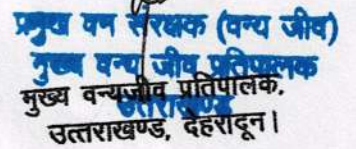 प्रमुख वन संरक्षक (वन्य जीव)
मुख्य वन्य जीव प्रतिपालक
उत्तराखण्ड
मुख्य वन्यजीव प्रतिपालक,
उत्तराखण्ड, देहरादून।